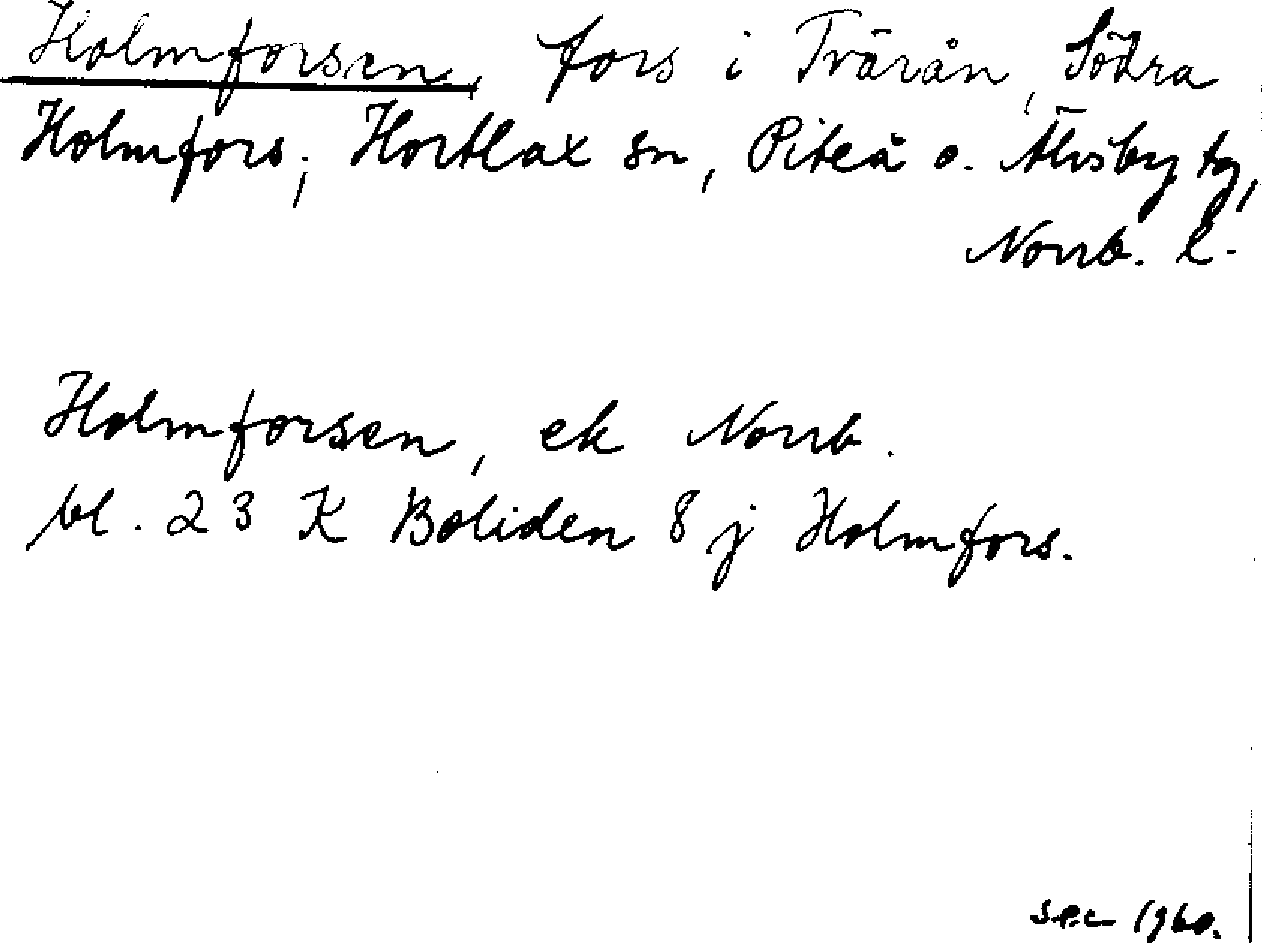 Holmforsen, fors i Tvärån, Södra
Holmfors, Hortlax sn, Piteå o. Älvsby tg,
Norrb. l.
Holmforsen, ek Norrb.
bl. 23 K Boliden 8 j Holmfors.
1960.